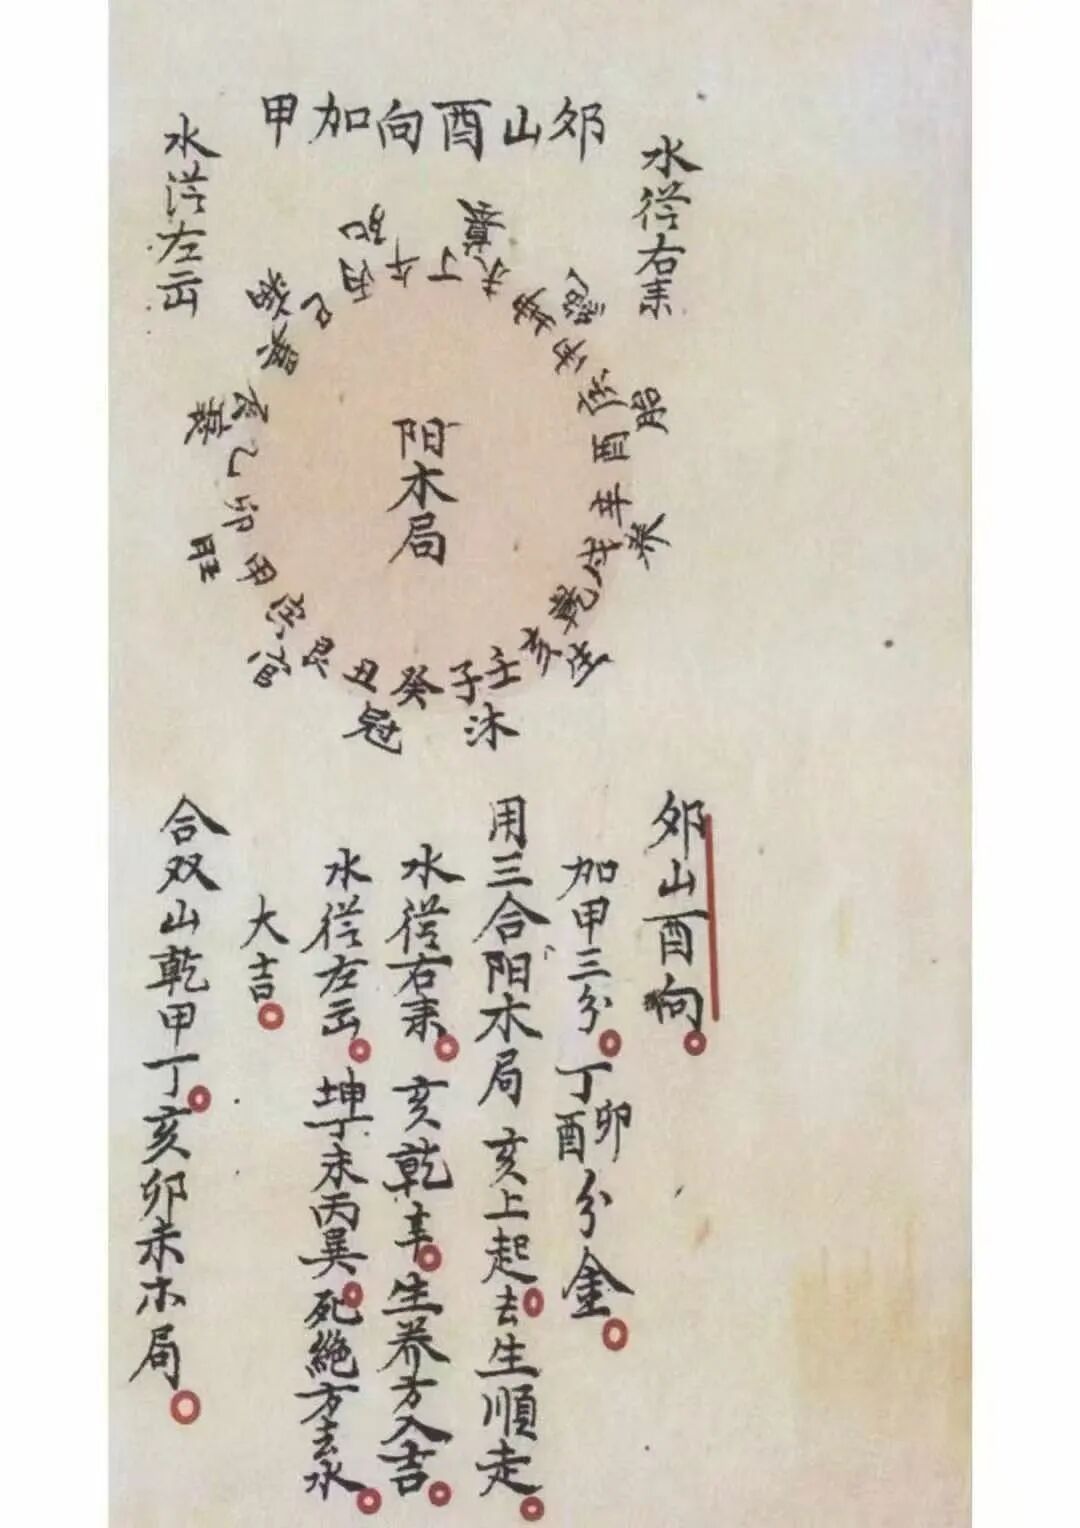 夘山酉向加甲
水從右来
水從左出
阳木局
丁
未
坤
胎
酉
辛
戌
养
乾
亥
壬
子
沐
癸
丑
冠
艮
寅
官
甲
卯
旺
乙
衰
巳
丙
午
死
夘山酉向
加甲三分丁卯酉分金
用三合阳木局亥上起長生順走
水從右来亥乾辛生养方入吉
水從左出坤丁未丙巽死絕方去水
大吉
合双山乾甲丁亥卯未木局